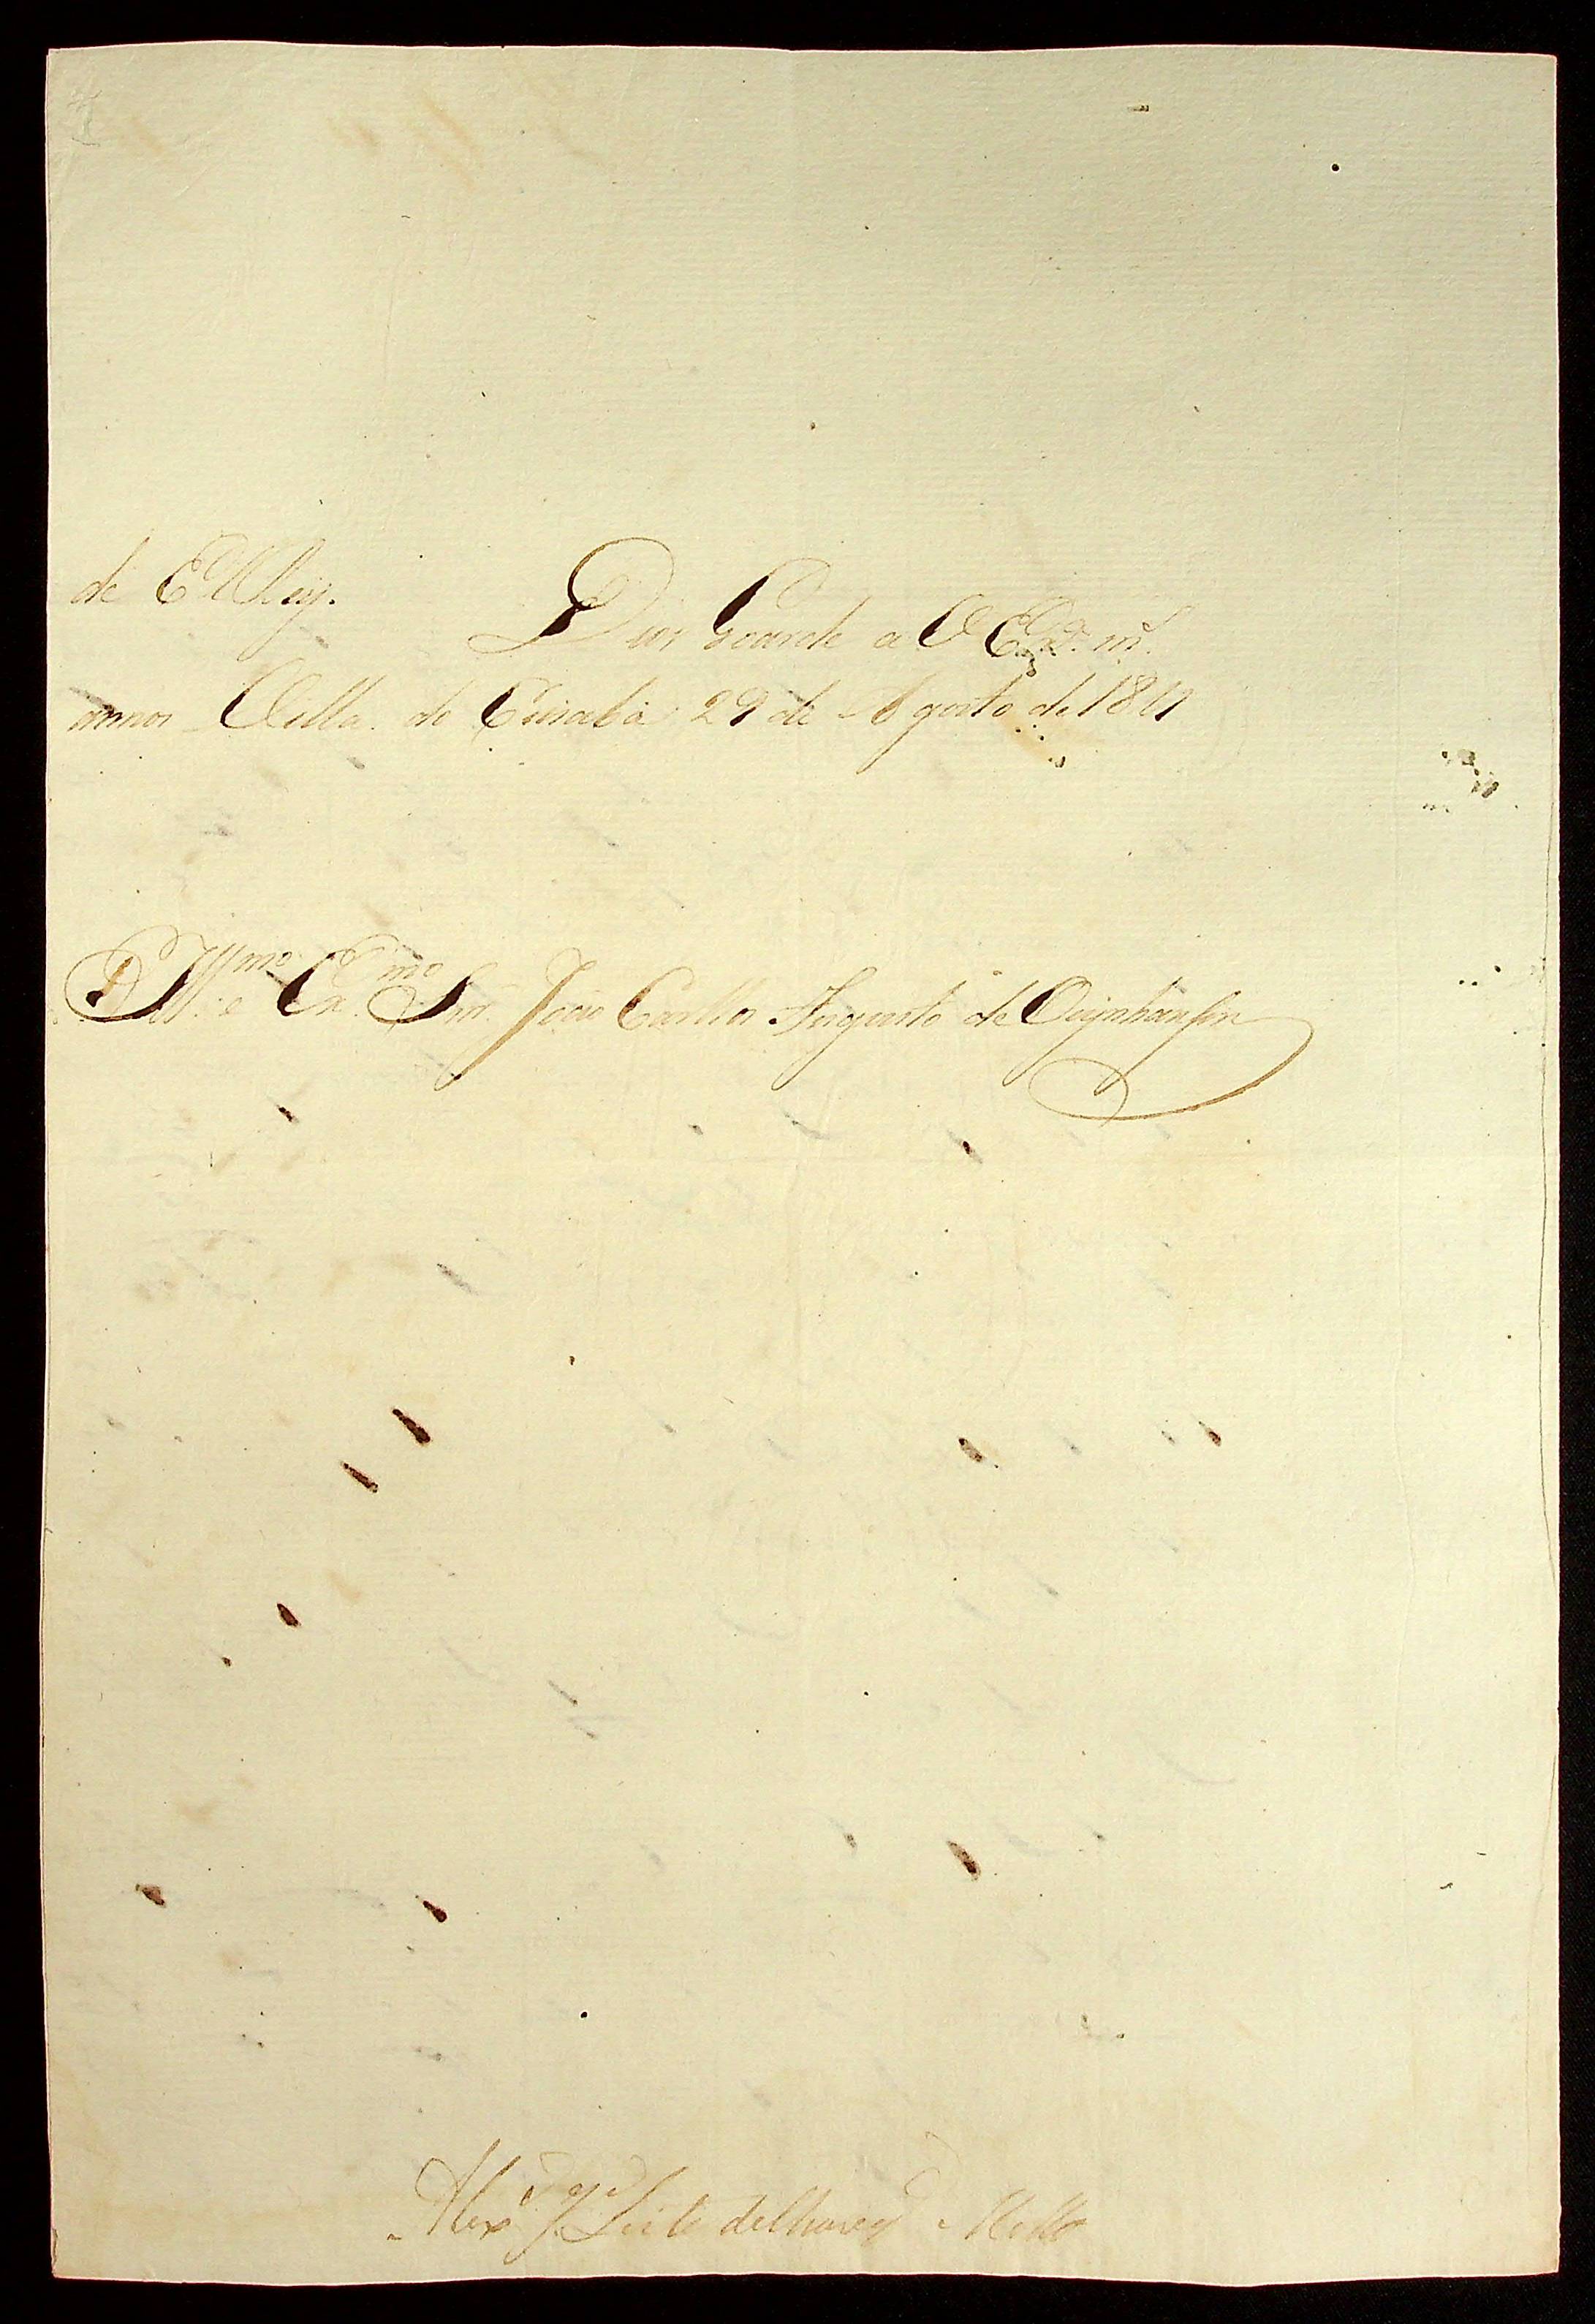 de ElRey.
Deos Goarde a V Exª. mˢ.
annos Villa do Cuiabá 29 de Agosto de 1811
Illmo. e Exmo. Snr. João Carllos Augusto de Oeynhausen
Alexe Je Leite de Chaves Mello